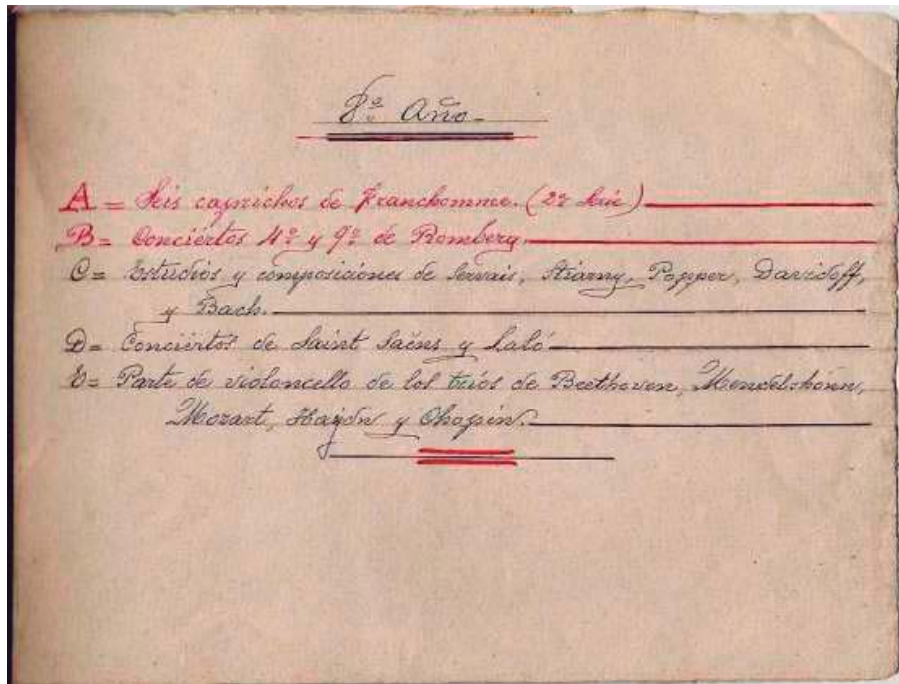 8º Año.
A = Seis caprichos de Franchomme. (2ª Série)
B = Conciértos 4º y 9º de Romberg.
C = Estudios y composiciones de Servais, Stiarny, Popper, Davidoff,
y Bach.
D = Conciértos de Saint Saëns y Laló
E = Parte de violoncello de los tríos de Beethoven, Mendelshónn,
Mozart, Haydn y Chopín.